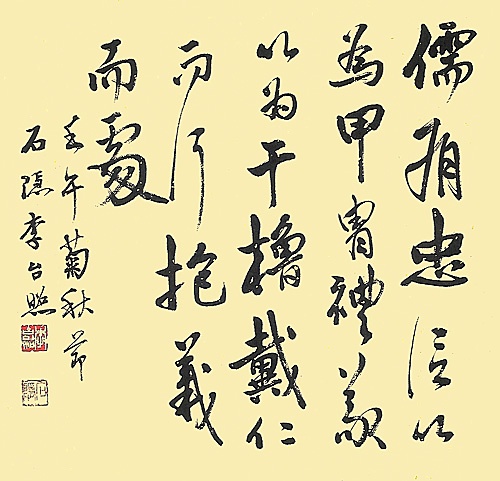 儒有忠信以
為甲冑禮義
以為干櫓戴仁
而行抱義
而處
壬午菊秋節
石隱李台